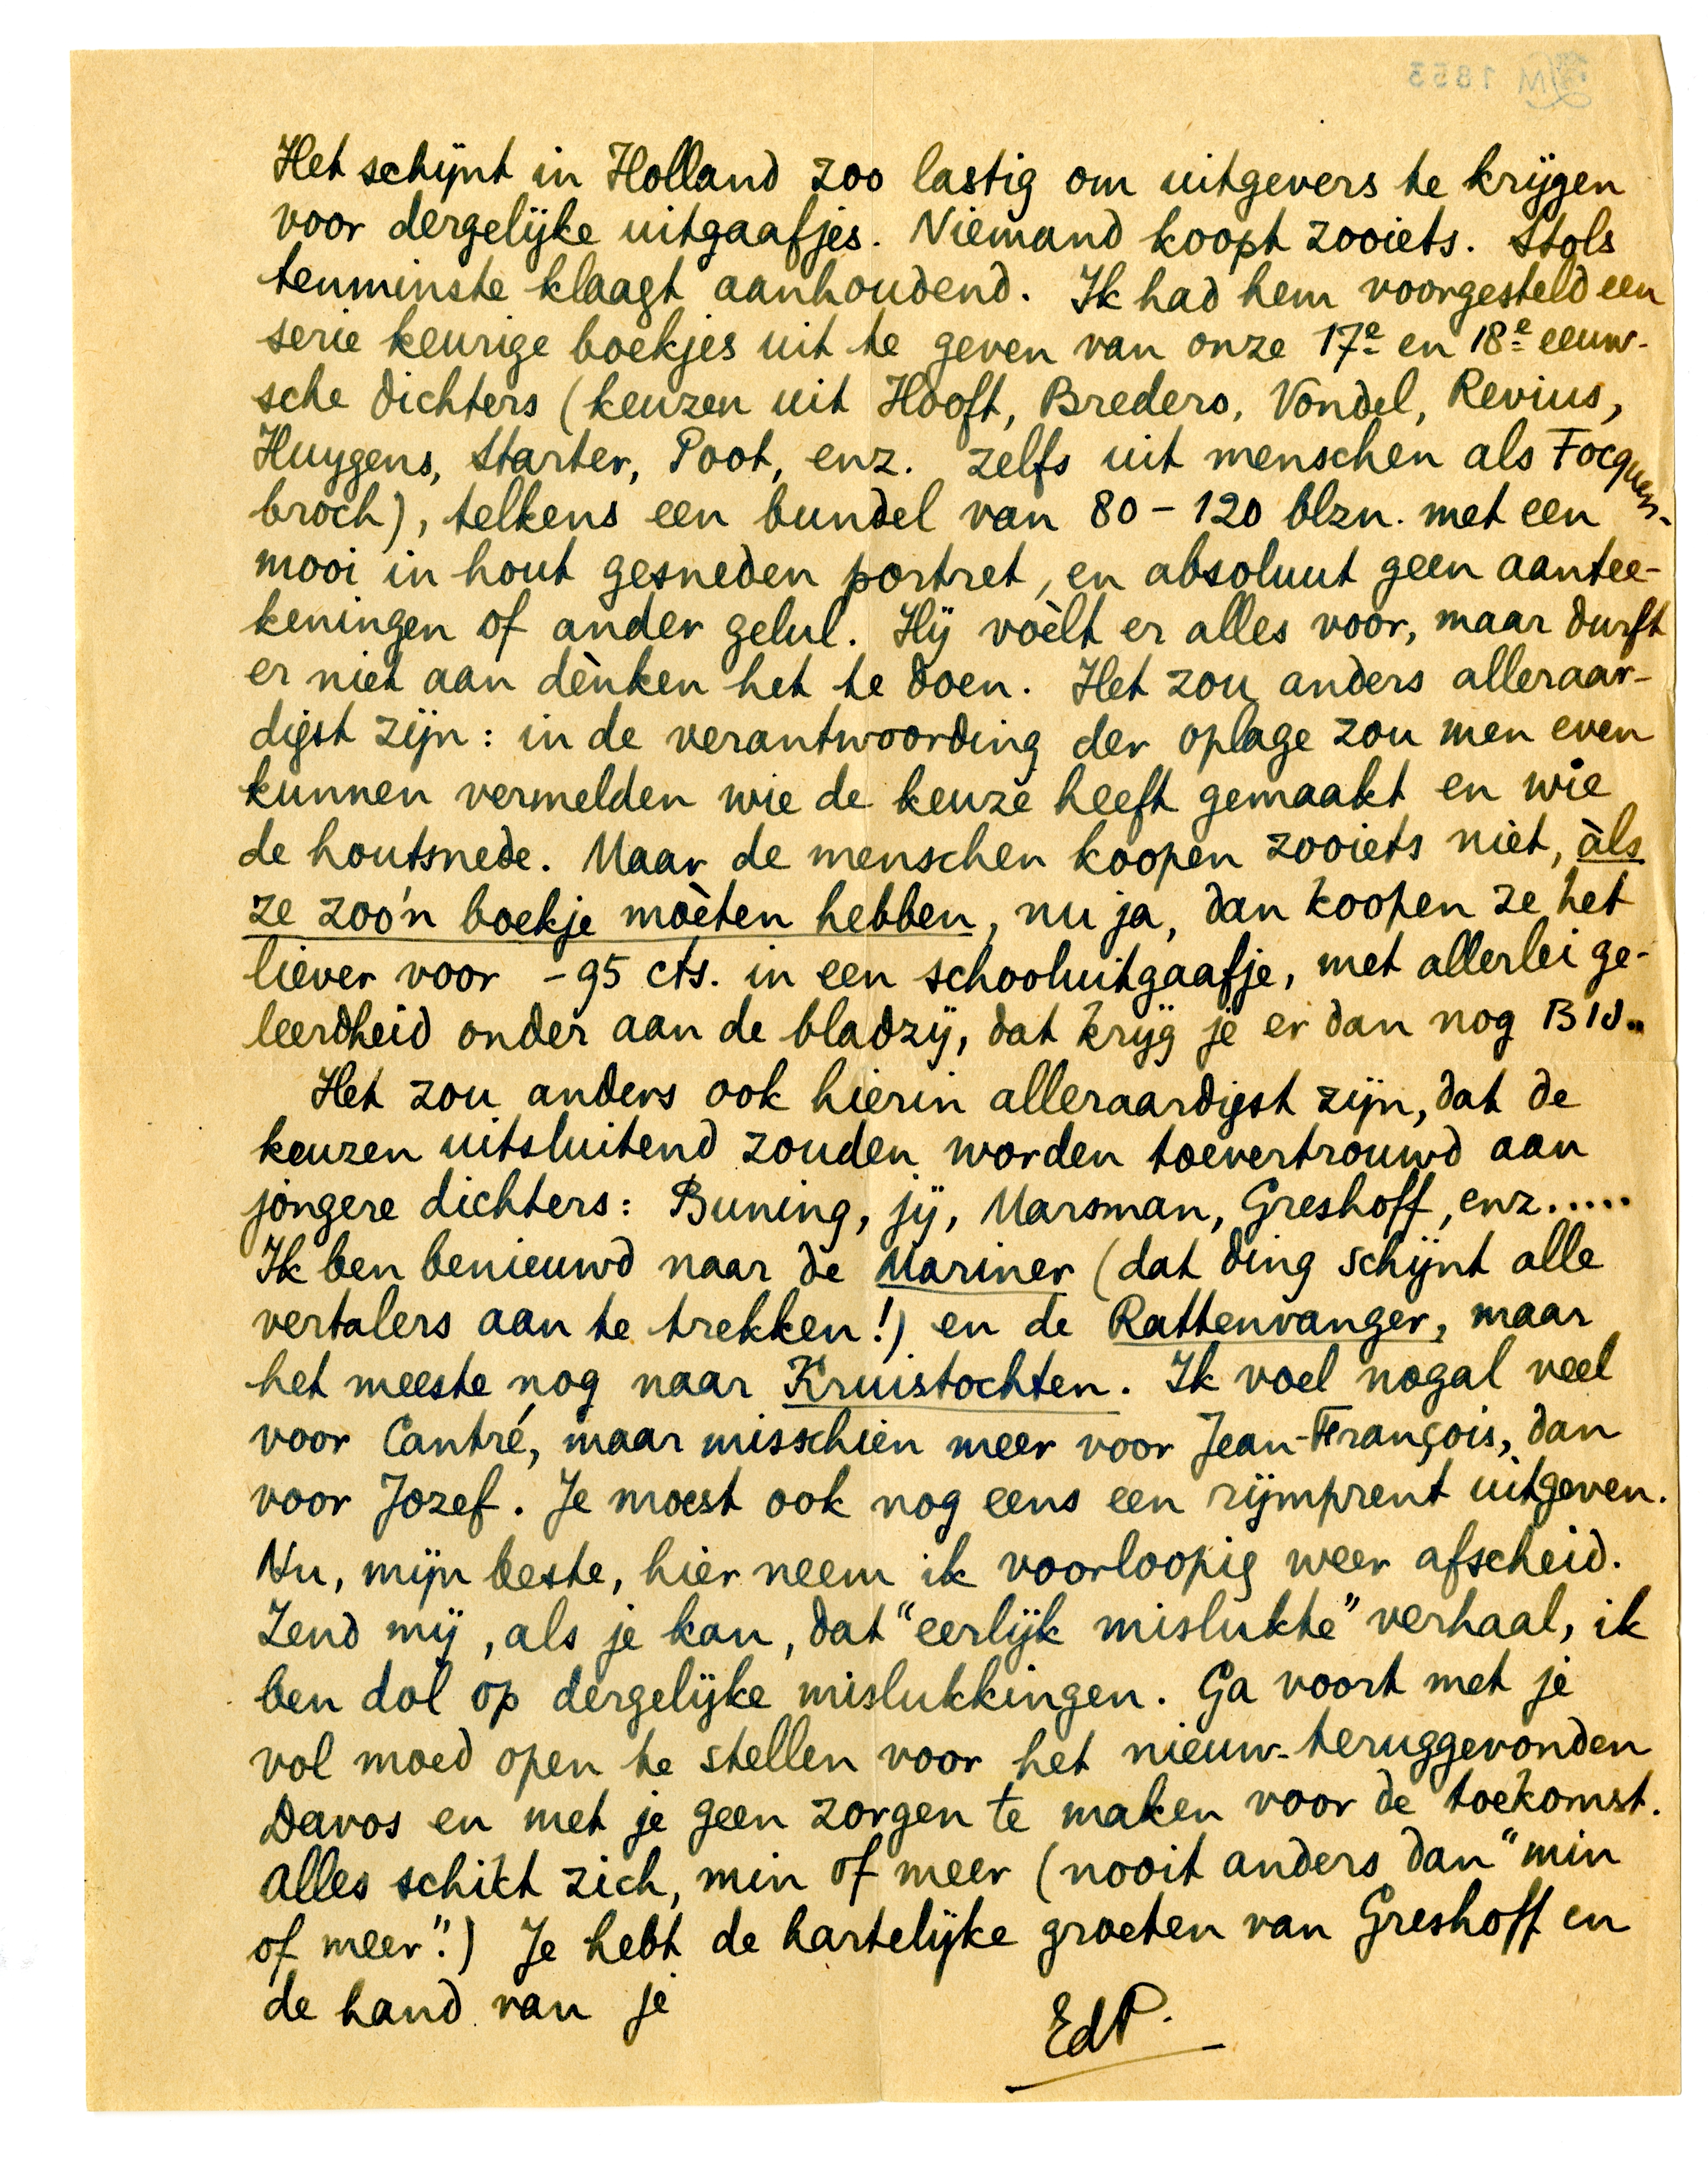 Het schijnt in Holland zoo lastig om uitgevers te krijgen
voor dergelijke uitgaafjes. Niemand koopt zooiets. Stols
tenminste klaagt aanhoudend. Ik had hem voorgesteld een
serie keurige boekjes uit te geven van onze 17e en 18e eeuw-
sche dichters (keuzen uit Hooft, Bredero, Vondel, Revius,
Huygens, Starter, Poot, enz. zelfs uit menschen als Focquen-
broch), telkens een bundel van 80 - 120 blzn. met een
mooi in hout gesneden portret, en absoluut geen aantee-
keningen of ander gelul. Hij voèlt er alles voor, maar durft
er niet aan dènken het te doen. Het zou anders alleraar-
digst zijn: in de verantwoording der oplage zou men even
kunnen vermelden wie de keuze heeft gemaakt en wie
de houtsnede. Maar de menschen koopen zooiets niet, àls
ze zoo'n boekje moèten hebben, nu ja, dan koopen ze het
liever voor - 95 cts. in een schooluitgaafje, met allerlei ge-
leerdheid onder aan de bladzij, dat krijg je er dan nog BIJ..
Het zou anders ook hierin alleraardigst zijn, dat de
keuzen uitsluitend zouden worden toevertrouwd aan
jongere dichters: Buning, jij, Marsman, Greshoff, enz.....
Ik ben benieuwd naar de Mariner (dat ding schijnt alle
vertalers aan te trekken!) en de Rattenvanger, maar
het meeste nog naar Kruistochten. Ik voel nogal veel
voor Cantré, maar misschien meer voor Jean-François, dan
voor Jozef. Je moest ook nog eens een rijmprent uitgeven.
Nu, mijn beste, hier neem ik voorloopig weer afscheid.
Zend mij, als je kan, dat "eerlijk mislukte" verhaal, ik
ben dol op dergelijke mislukkingen. Ga voort met je
vol moed open te stellen voor het nieuw-teruggevonden
Davos en met je geen zorgen te maken voor de toekomst.
Alles schikt zich, min of meer (nooit anders dan "min
of meer".) Je hebt de hartelijke groeten van Greshoff en
de hand van je
EdP.